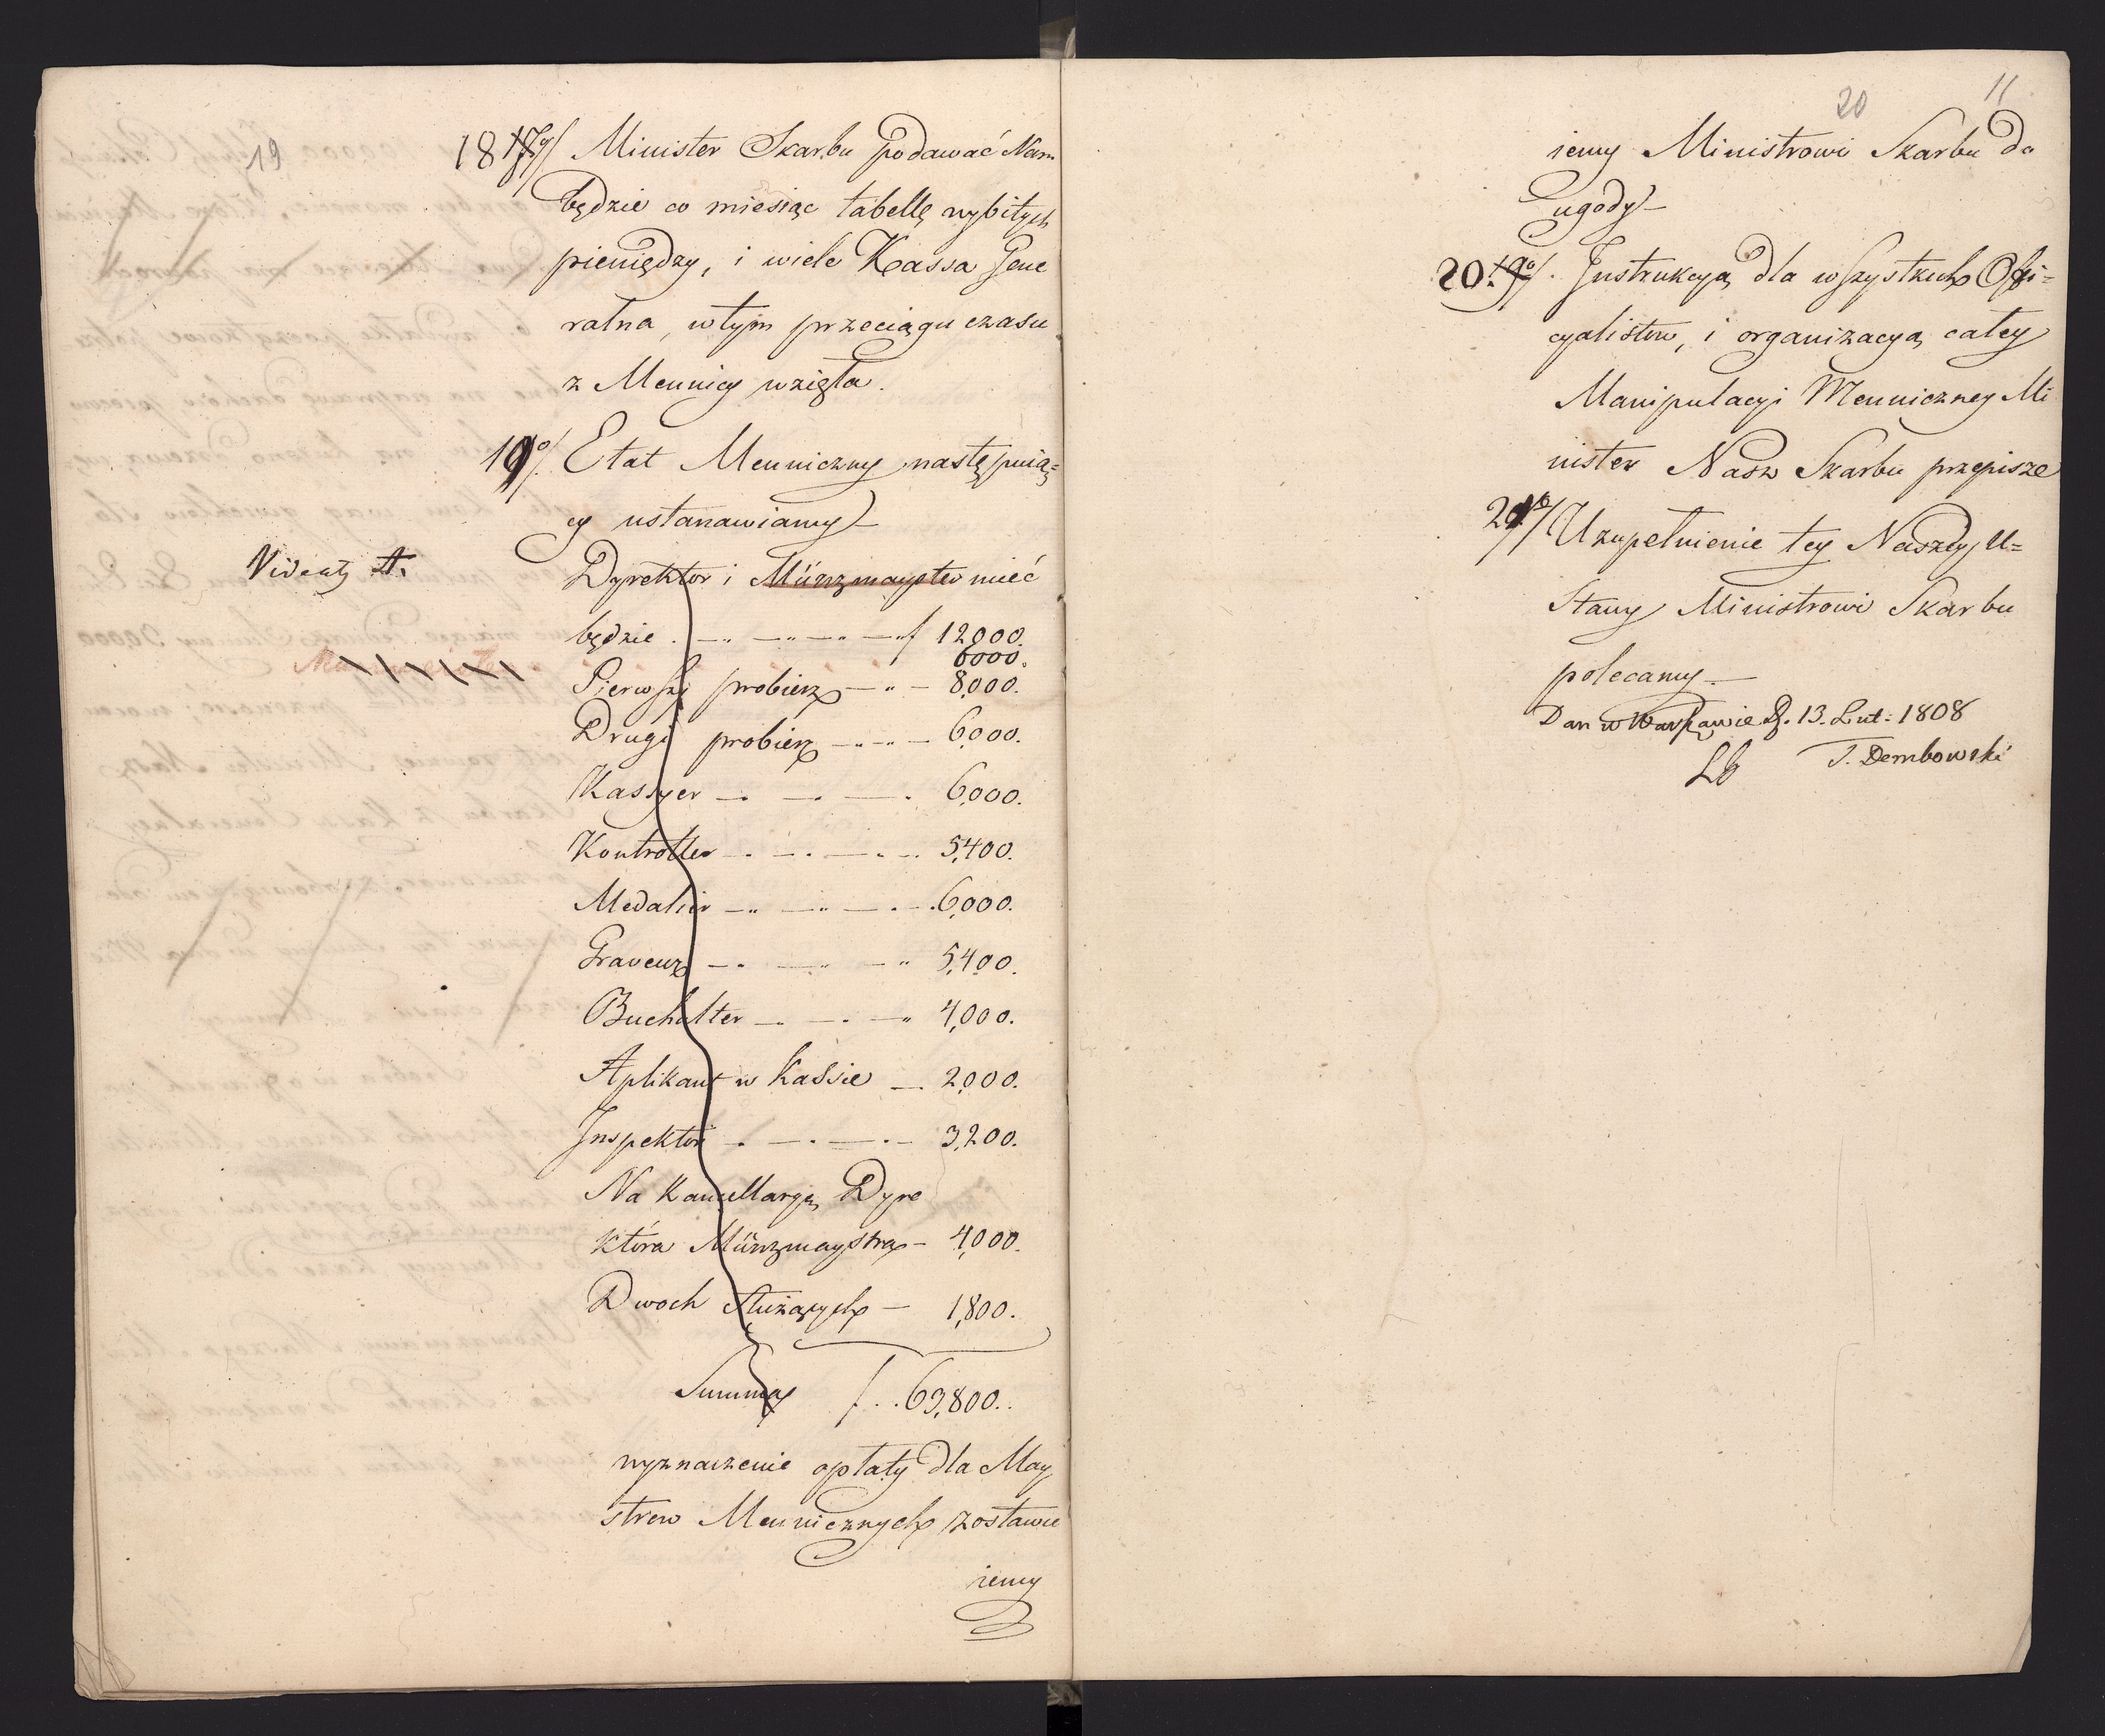 19
18 17º/ Minister Skarbu podawać Nam
będzie co miesiąc tabellę wybitych
pieniędzy, i wiele Kassa Gene
ralna, w tym przeciągu czasu
z Mennicy wzięła.
19º/. Etat Menniczny następuią=
cy ustanawiamy
Videat A.
Dyrektor i Münzmayster mieć
będzie . — „ — „ — „ — „ f 12000.
6000.
Pierwszy probierz — „ — 8,000.
Drugi probierz — „ — „ — 6,000.
Kassyer — . — . — . 6,000.
Kontroller — . — . — . — . 5,400.
Medalier — „ — „ — . — . 6,000.
Graveur — . — „ — „ 5,400.
Buchalter — . — . — „ 4,000.
Aplikant w Kassie — . 2,000.
Inspektor . — . — . — 3,200.
Na Kancellaryą Dyre
ktora Münzmaystra — 4,000.
Dwoch służących — 1,800.
Summa f . . 63,800. .
wyznaczenie opłaty dla May
strow Mennicznych zostawu
iemy
20
11
iemy Ministrowi Skarbu do
ugody —
20. 19º/. Instrukcyą dla wszystkich Offi=
cyalistow, i organizacyą całey
Manipulacyi Menniczney Mi
nister Nasz Skarbu przepisze
21º/ Uzupełnienie tey Naszey U=
stawy Ministrowi Skarbu
polecamy —
Dan w Warszawie d. 13. Lut: 1808
J. Dembowski